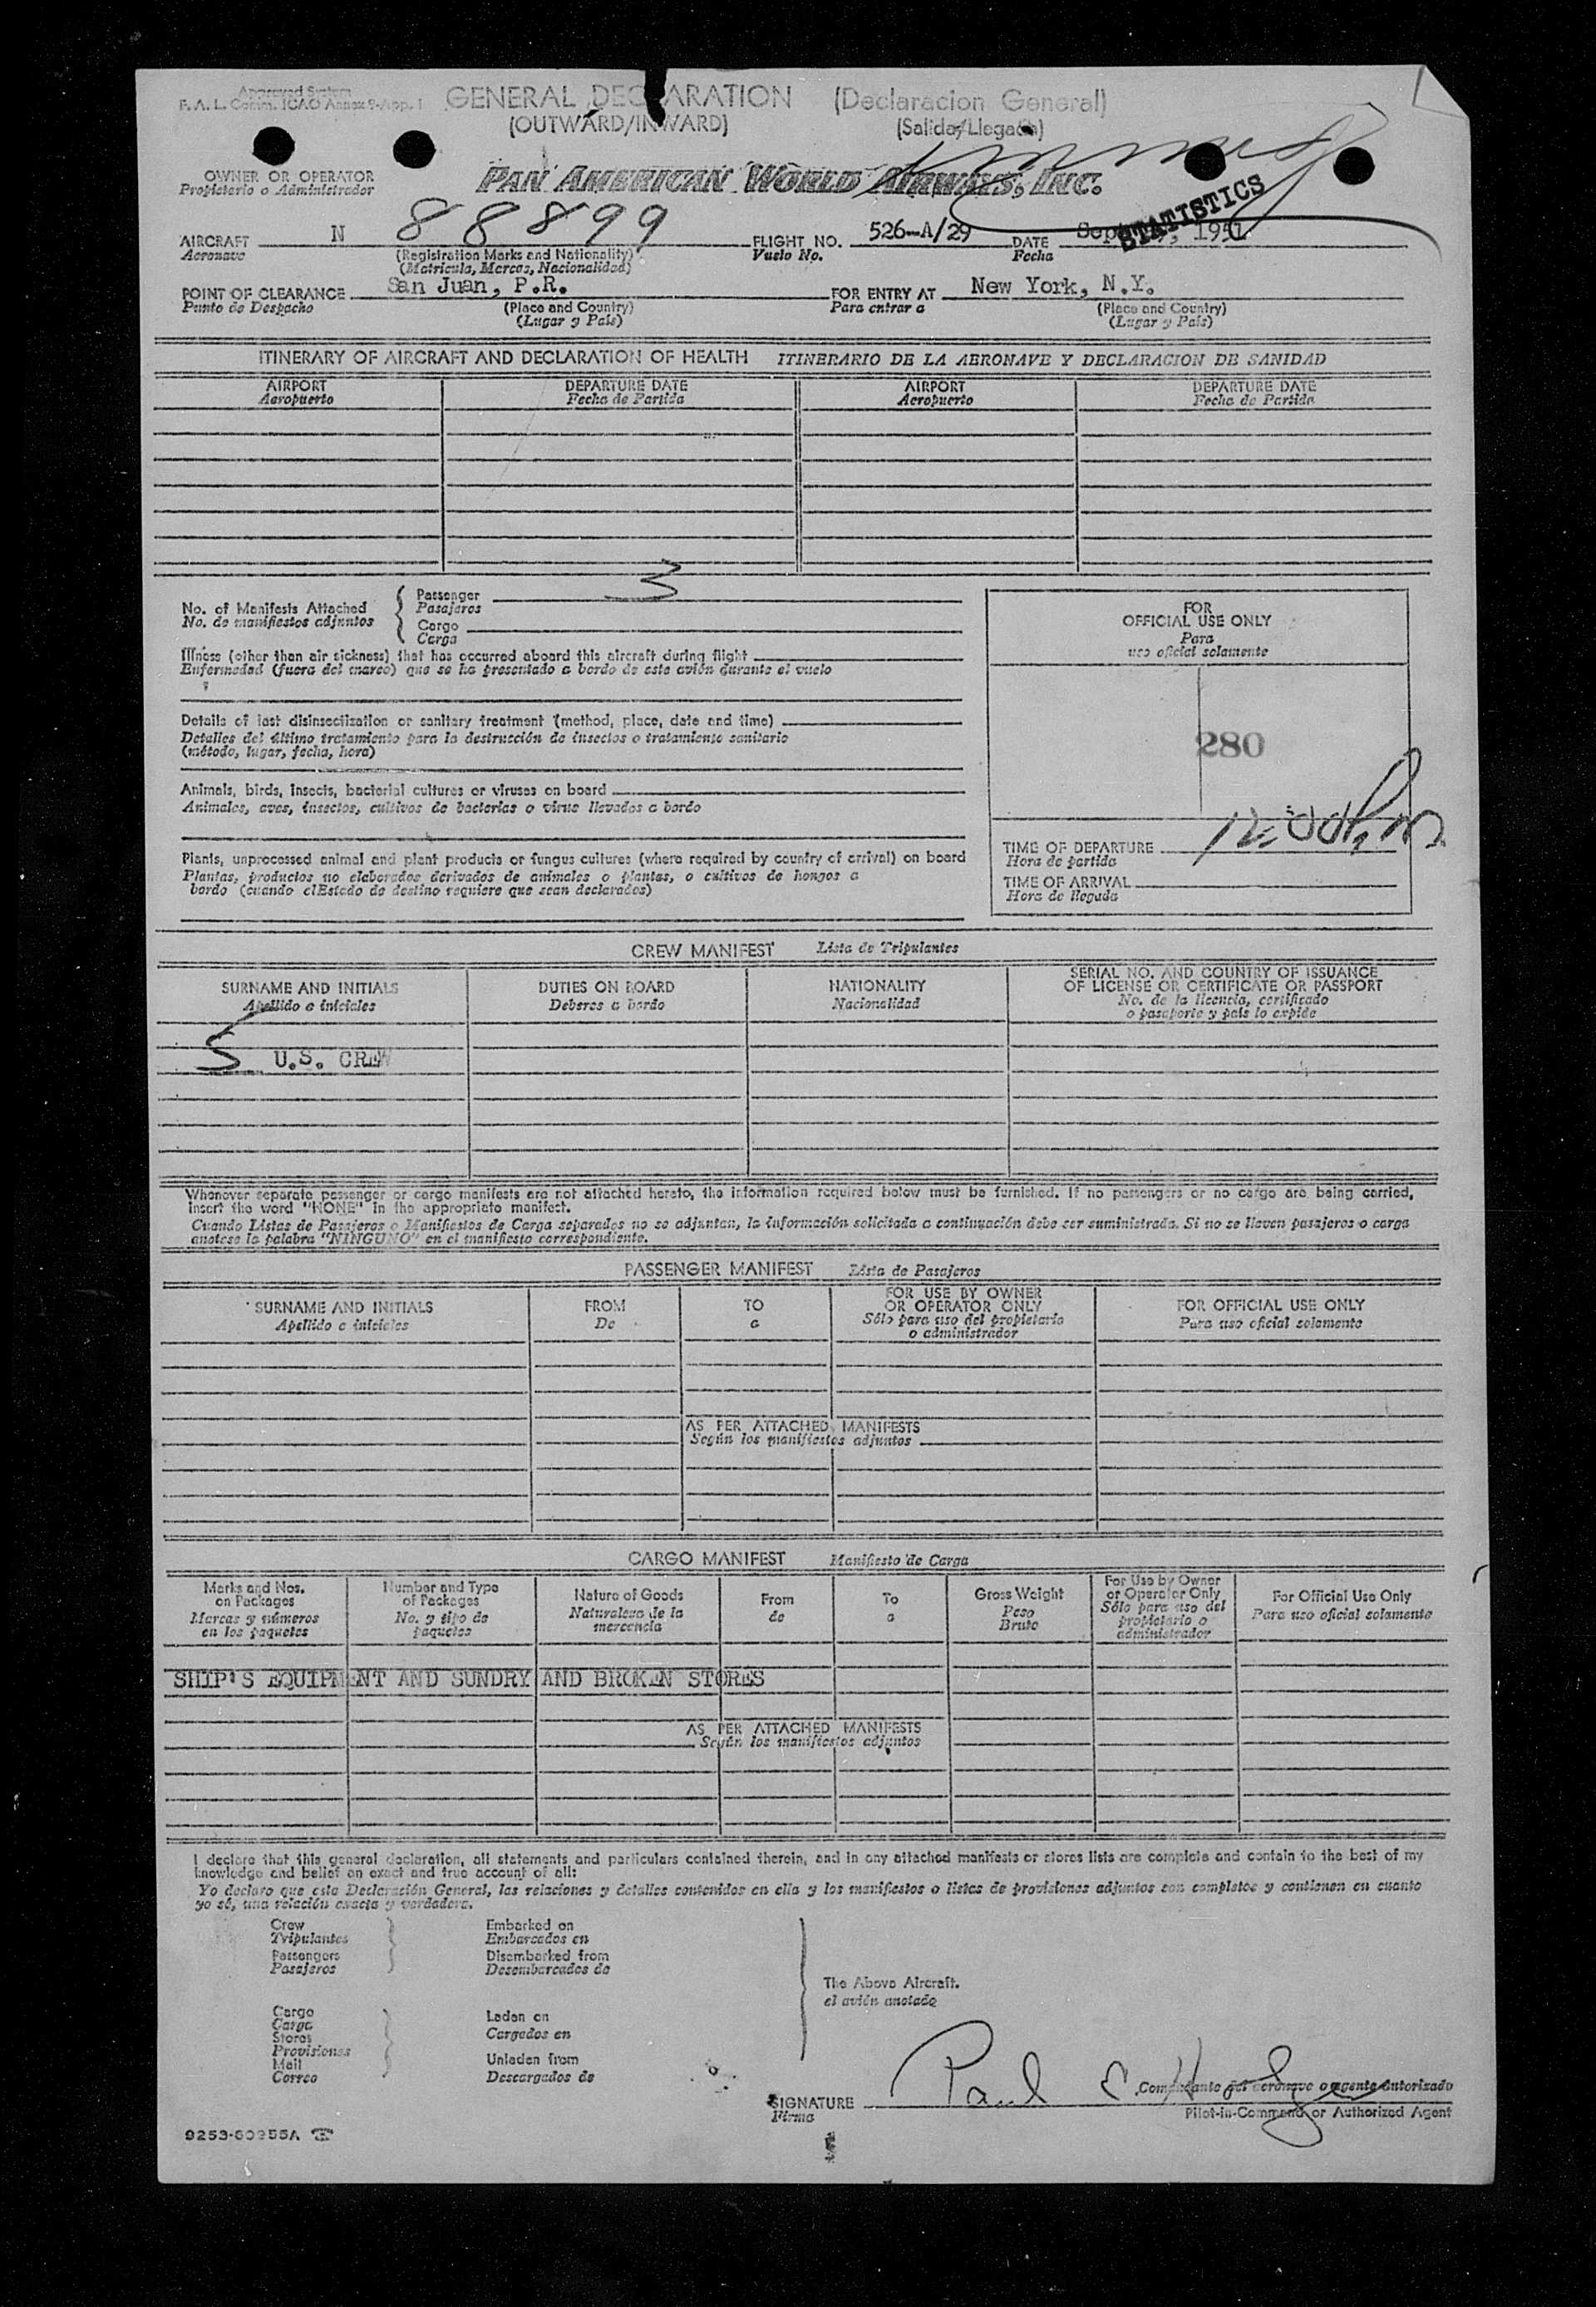 Approved System
F. A. L. Comm. ICAO Annex 9-App. 1
GENERAL DECLARATION (Declaracion General)
(OUTWARD/INWARD) (Salida/Llegada)
OWNER OR OPERATOR
Propietario o Administrador
PAN AMERICAN WORLD AIRWAYS, INC.
STATISTICS
AIRCRAFT N 88899 FLIGHT NO. 526-A/29 DATE 1951
Aeronave (Registration Marks and Nationality) Vuelo No. Fecha
(Matricula, Marcas, Nacionalidad)
POINT OF CLEARANCE San Juan, P.R. FOR ENTRY AT New York, N.Y.
Punto de Despacho (Place and Country) Para entrar a (Place and Country)
(Lugar y País) (Lugar y País)
ITINERARY OF AIRCRAFT AND DECLARATION OF HEALTH ITINERARIO DE LA AERONAVE Y DECLARACION DE SANIDAD
AIRPORT DEPARTURE DATE AIRPORT DEPARTURE DATE
Aeropuerto Fecha de Partida Aeropuerto Fecha de Partida
No. of Manifests Attached
No. de manifiestos adjuntos
Passenger 3
Pasajeros
Cargo
Carga
Illness (other than air sickness) that has occurred aboard this aircraft during flight
Enfermedad (fuera del mareo) que se ha presentado a bordo de este avión durante el vuelo
Details of last disinsectization or sanitary treatment (method, place, date and time)
Detalles del último tratamiento para la destrucción de insectos o tratamiento sanitario
(método, lugar, fecha, hora)
Animals, birds, insects, bacterial cultures or viruses on board
Animales, aves, insectos, cultivos de bacterias o virus llevados a bordo
Plants, unprocessed animal and plant products or fungus cultures (where required by country of arrival) on board
Plantas, productos no elaborados derivados de animales o plantas, o cultivos de hongos a
bordo (cuando el Estado de destino requiere que sean declarados)
FOR
OFFICIAL USE ONLY
Para
uso oficial solamente
280
TIME OF DEPARTURE
Hora de partida
TIME OF ARRIVAL
Hora de llegada
CREW MANIFEST Lista de Tripulantes
SURNAME AND INITIALS
Apellido e iniciales
DUTIES ON BOARD
Deberes a bordo
NATIONALITY
Nacionalidad
SERIAL NO. AND COUNTRY OF ISSUANCE
OF LICENSE OR CERTIFICATE OR PASSPORT
No. de la licencia, certificado
o pasaporte y país lo expide
5 U.S. CREW
Whenever separate passenger or cargo manifests are not attached hereto, the information required below must be furnished. If no passengers or no cargo are being carried,
insert the word "NONE" in the appropriate manifest.
Cuando Listas de Pasajeros o Manifiestos de Carga separados no se adjuntan, la información solicitada a continuación debe ser suministrada. Si no se lleven pasajeros o carga
anotese la palabra "NINGUNO" en el manifiesto correspondiente.
PASSENGER MANIFEST Lista de Pasajeros
SURNAME AND INITIALS
Apellido e iniciales
FROM
De
TO
a
FOR USE BY OWNER
OR OPERATOR ONLY
Sólo para uso del propietario
o administrador
FOR OFFICIAL USE ONLY
Para uso oficial solamente
AS PER ATTACHED MANIFESTS
Según los manifiestos adjuntos
CARGO MANIFEST Manifiesto de Carga
Marks and Nos.
on Packages
Marcas y números
en los paquetes
Number and Type
of Packages
No. y tipo de
paquetes
Nature of Goods
Naturaleza de la
mercancia
From
de
To
a
Gross Weight
Peso
Bruto
For Use by Owner
or Operator Only
Sólo para uso del
propietario o
administrador
For Official Use Only
Para uso oficial solamente
SHIP'S EQUIPMENT AND SUNDRY AND BROKEN STORES
AS PER ATTACHED MANIFESTS
Según los manifiestos adjuntos
I declare that this general declaration, all statements and particulars contained therein, and in any attached manifests or stores lists are complete and contain to the best of my
knowledge and belief an exact and true account of all:
Yo declaro que esta Declaración General, las relaciones y detalles contenidos en ella y los manifiestos o listas de provisiones adjuntos son completos y contienen en cuanto
yo sé, una relación exacta y verdadera.
Crew
Tripulantes
Passengers
Pasajeros
Embarked on
Embarcados en
Disembarked from
Desembarcados de
The Above Aircraft.
el avión anotado
Cargo
Carga
Stores
Provisiones
Mail
Correo
Laden on
Cargados en
Unladen from
Descargados de
SIGNATURE Paul E
Firma
Comandante del aeronave o agente Autorizado
Pilot-in-Command or Authorized Agent